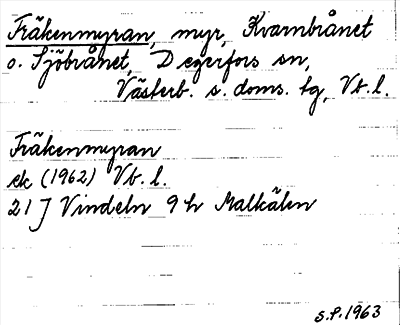 Fräkenmyran, myr, Kvarnbrånet
o. Sjöbrånet, Degerfors sn,
Västerb. s. doms. tg, Vb. l.
Fräkenmyran
ek (1962) Vb. l.
21 J Vindeln 9 h Malkälen
S.P. 1963